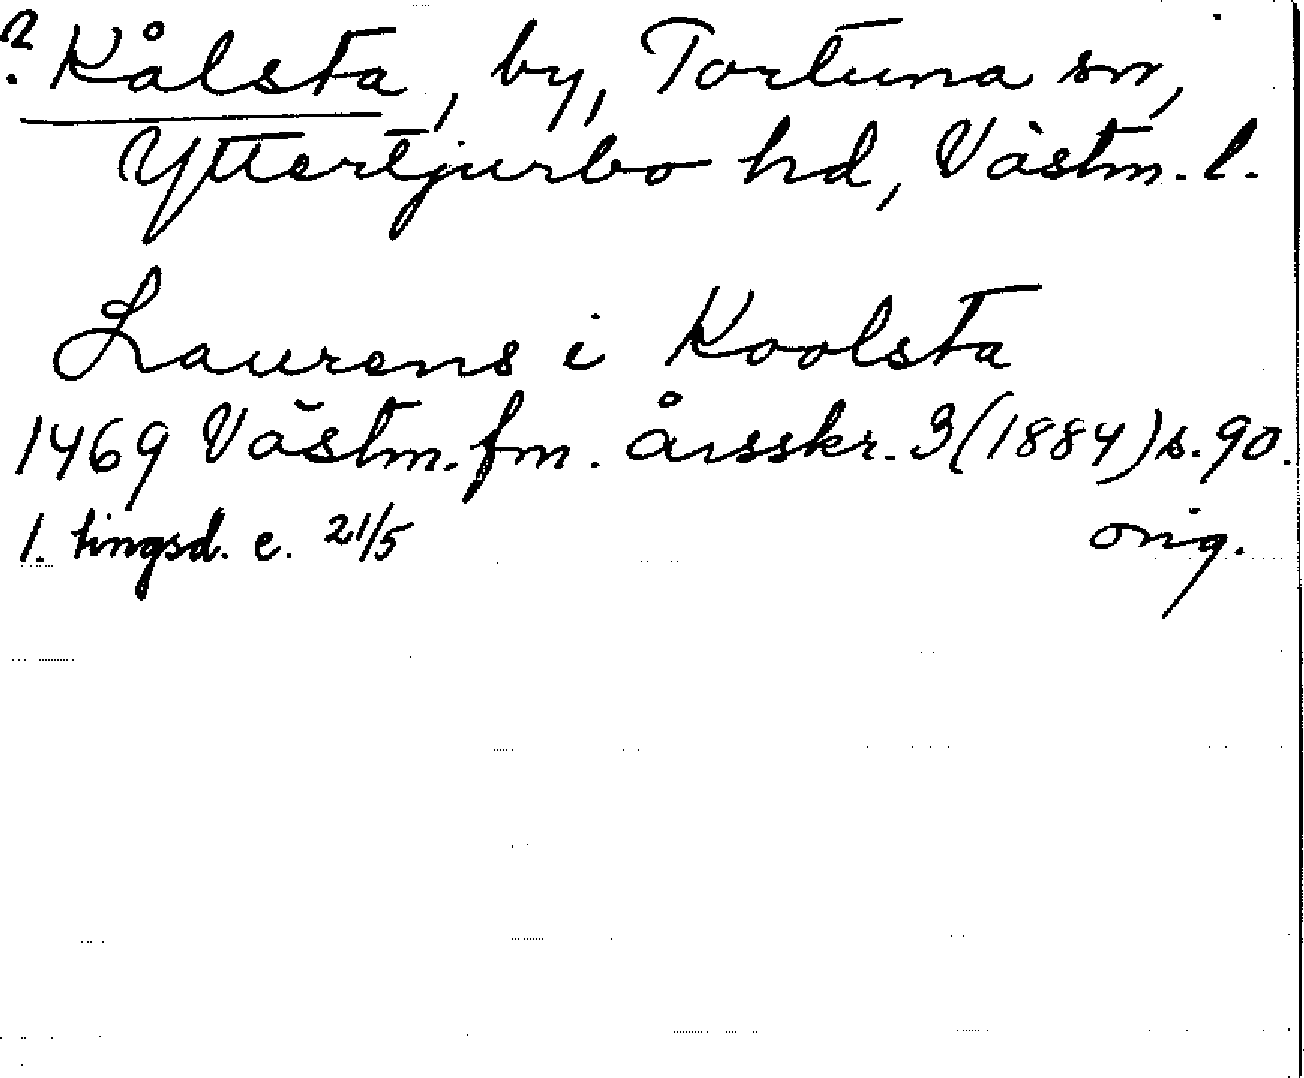 ? Kålsta, by, Tortuna sn,
Yttertjurbo hd, Västm. l.
Laurens i Koolsta
1469 Västm. fm. årsskr. 3 (1884) s. 90.
1. tingsd. e. 21/5 orig.